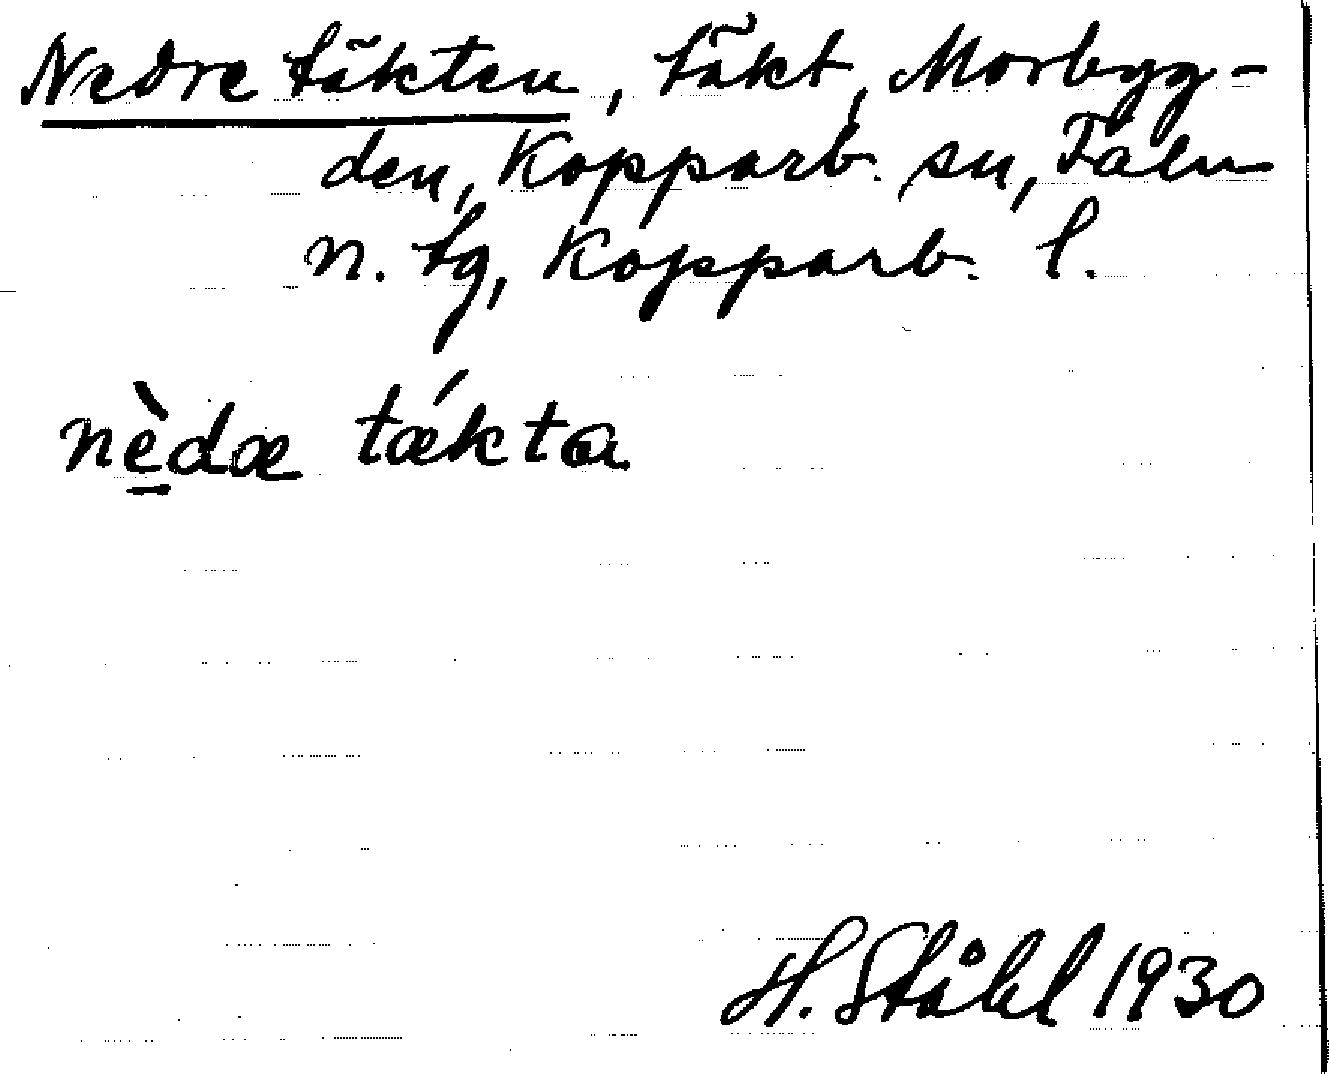 Nedre täkten, täkt, Morbyg-
den, Kopparb. sn, Falu
n. tg, Kopparb. l.
nè̠dæ tǽkta
H. Ståhl 1930